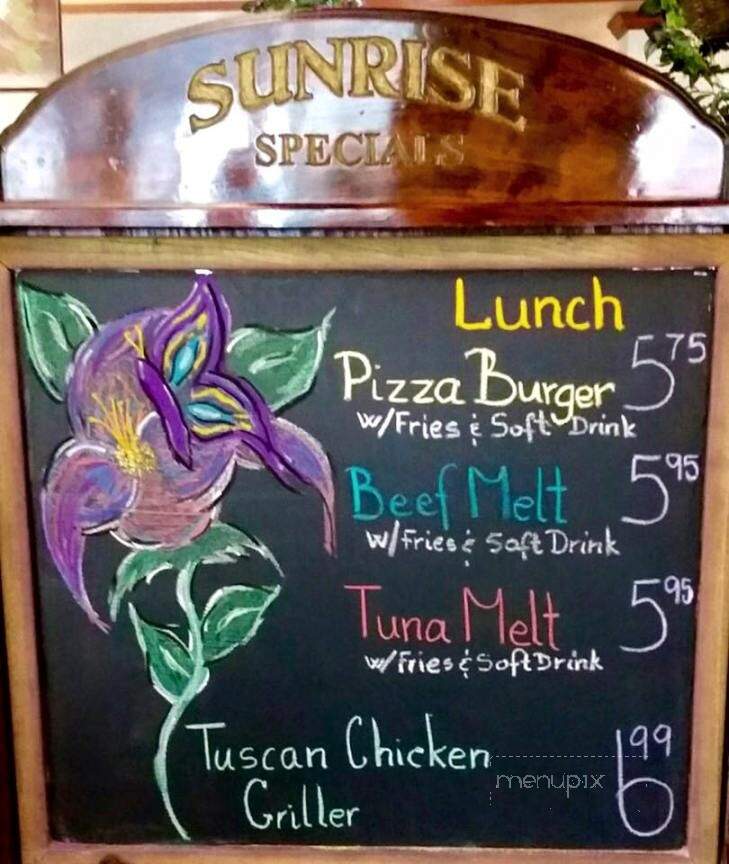 SUNRISE
SPECIALS
Lunch
Pizza Burger 5 75
w/Fries & Soft Drink
Beef Melt 5 95
w/Fries & Soft Drink
Tuna Melt 5 95
w/Fries & Soft Drink
Tuscan Chicken
Griller 6 99
menupix